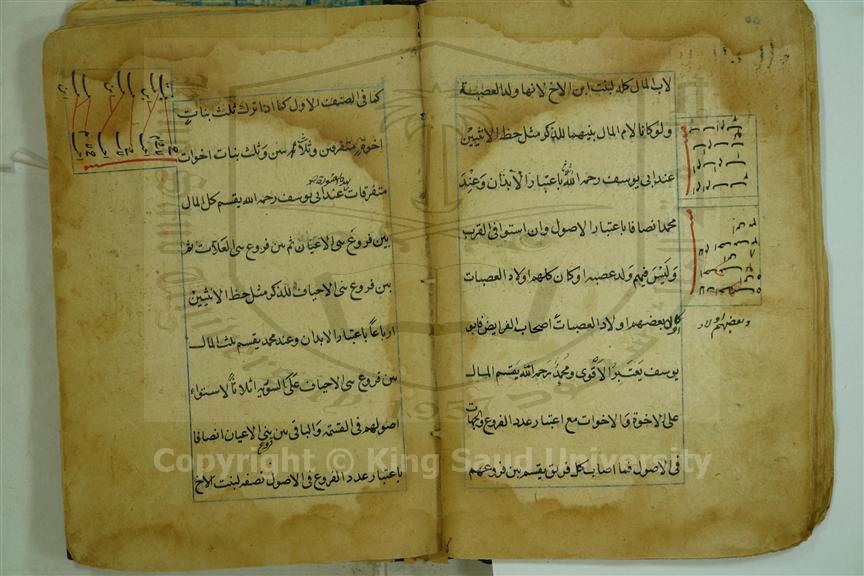 لاب المال كله لبنت ابن الاخ لانها ولد العصبة
ولو كانا لام المال بينهما للذكر مثل حظ الانثيين
عند ابى يوسف رحمه الله باعتبار الابدان وعند
محمد انصافا باعتبار الاصول وان استووا فى القرب
وليس فيهم ولد عصبه او كان كلهم اولاد العصبات
او كان بعضهم اولاد العصبات اصحاب الفرايض فابو
وبعضهم اولاد
يوسف يعتبر الاقوى ومحمد رحمه الله يقسم المال
على الاخوة والاخوات مع اعتبار عدد الفروع والجهات
فى الاصول فما اصاب كل فريق يقسم بين فروعهم
كما فى الصنف الاول كما اذا ترك ثلث بنات
اخوة متفرقين وثلاثة بنين وثلث بنات اخوات
متفرقات عند ابى يوسف رحمه الله يقسم كل المال
بين فروع بنى الاعيان ثم بين فروع بنى العلات ثم
بين فروع بنى الاخياف للذكر مثل حظ الانثيين
ارباعا باعتبار الابدان وعند محمد يقسم ثلث المال
بين فروع بنى الاخياف على السوية اثلاثا لاستواء
اصولهم فى القسمة والباقى بين بنى الاعيان انصافا
فروع
باعتبار عدد الفروع فى الاصول نصفه لبنت الاخ
Copyright © King Saud University
1957